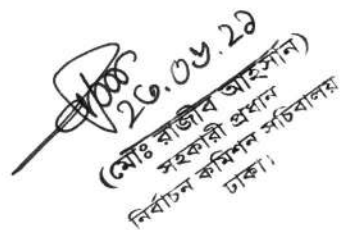 ২৩.০৬.২১
(মোঃ রাজীব আহসান)
সহকারী প্রধান
নির্বাচন কমিশন সচিবালয়
ঢাকা।